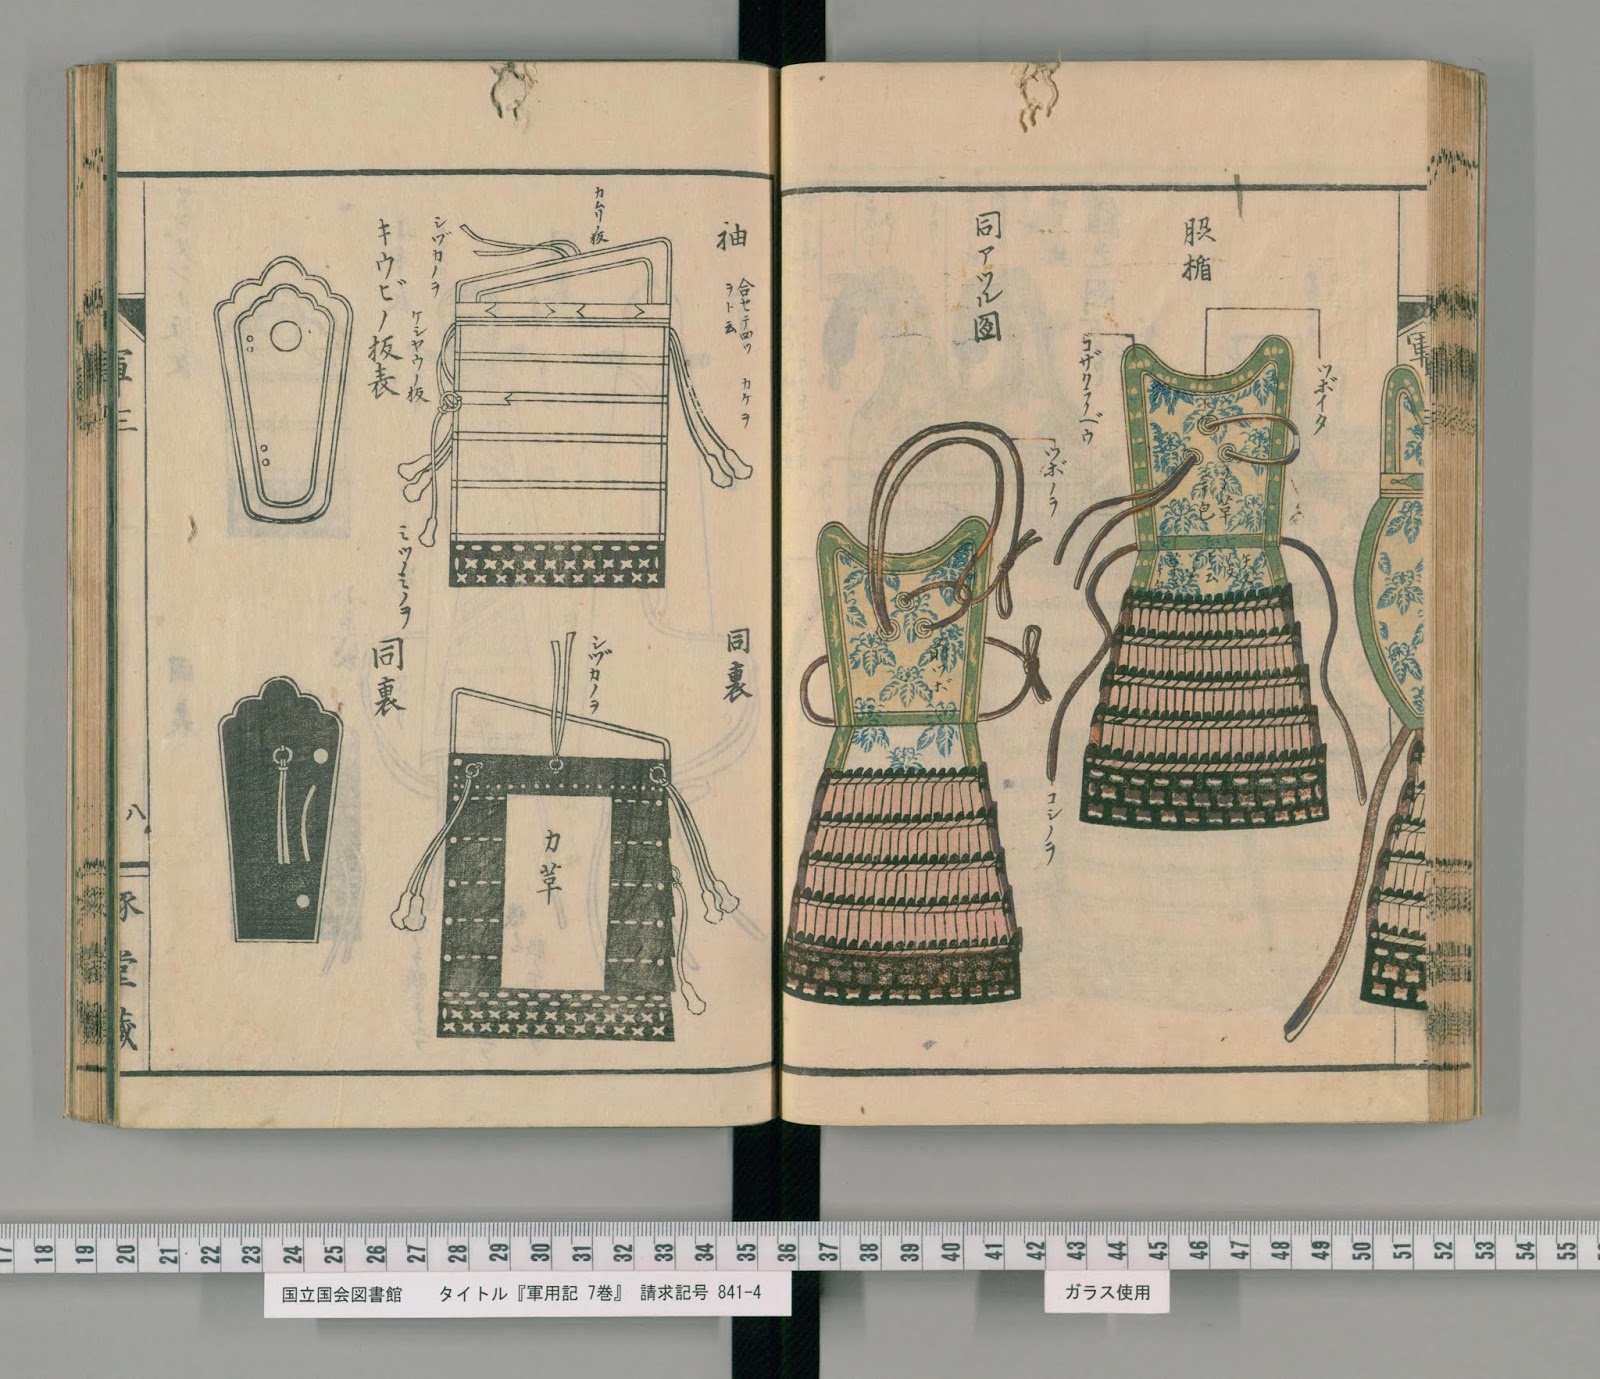 脵楯
ツボイタ
コザクラベウ
コシノヲ
同アツル図
ツボノヲ
前ツボ
袖
合セテ四ツ
ヲト云
カケヲ
カムリノ板
シヅカノヲ
ケシヤウノ板
ミツノミノヲ
キウビノ板表
同裏
シヅカノヲ
力革
同裏
軍三
八
琢堂蔵
17 18 19 20 21 22 23 24 25 26 27 28 29 30 31 32 33 34 35 36 37 38 39 40 41 42 43 44 45 46 47 48 49 50 51 52 53 54 55
国立国会図書館 タイトル『軍用記 7巻』 請求記号 841-4
ガラス使用